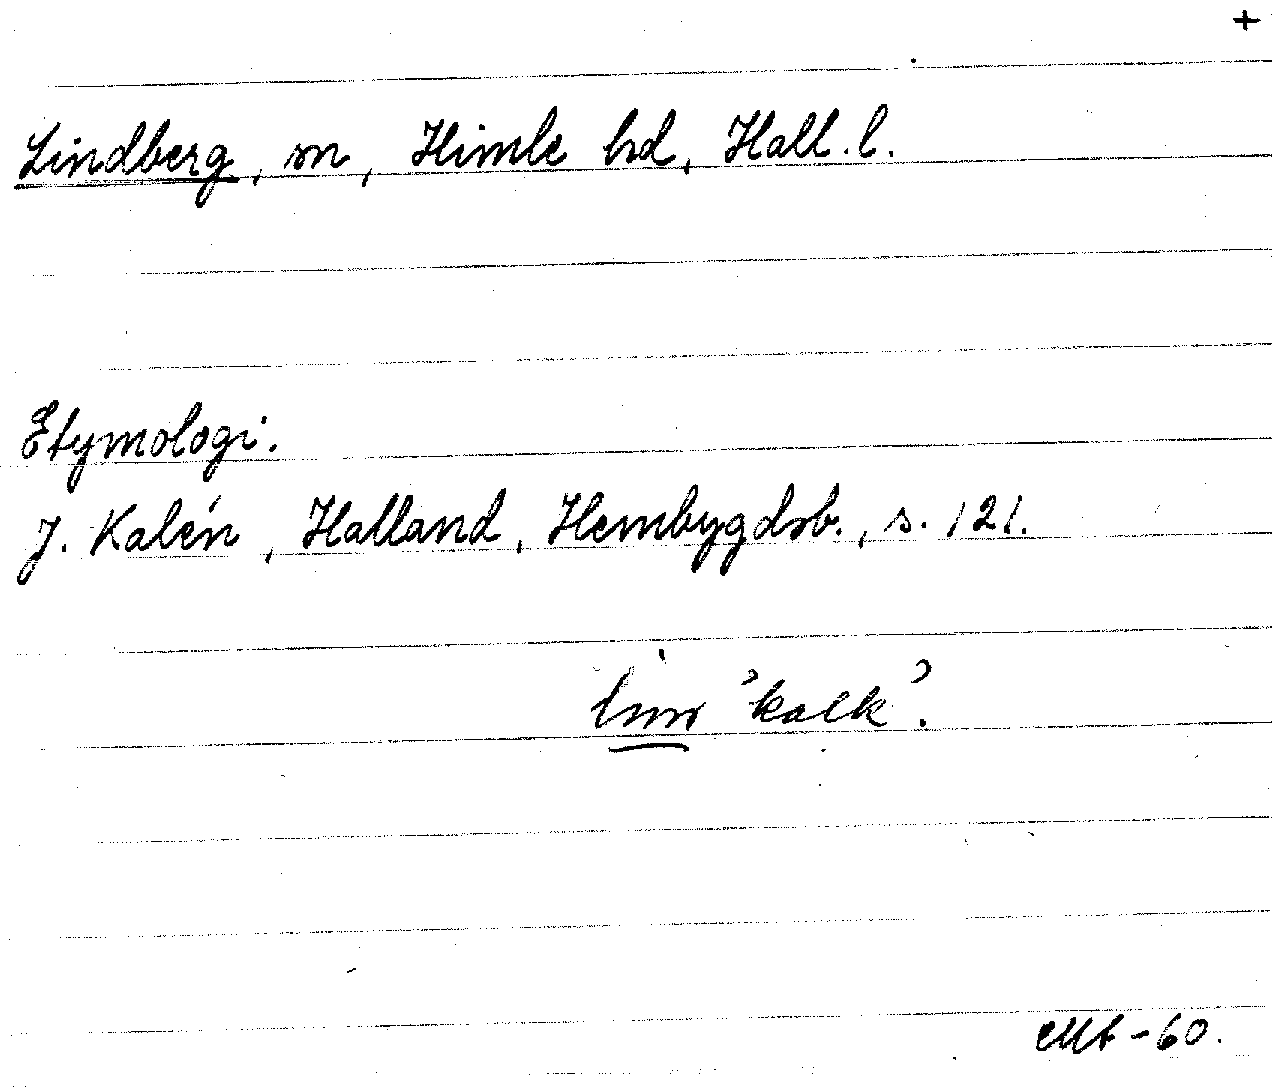 +
Lindberg, sn, Himle hd, Hall. l.
Etymologi.
J. Kalén, Halland, Hembygdsb., s. 121.
lim 'kalk'.
-60.